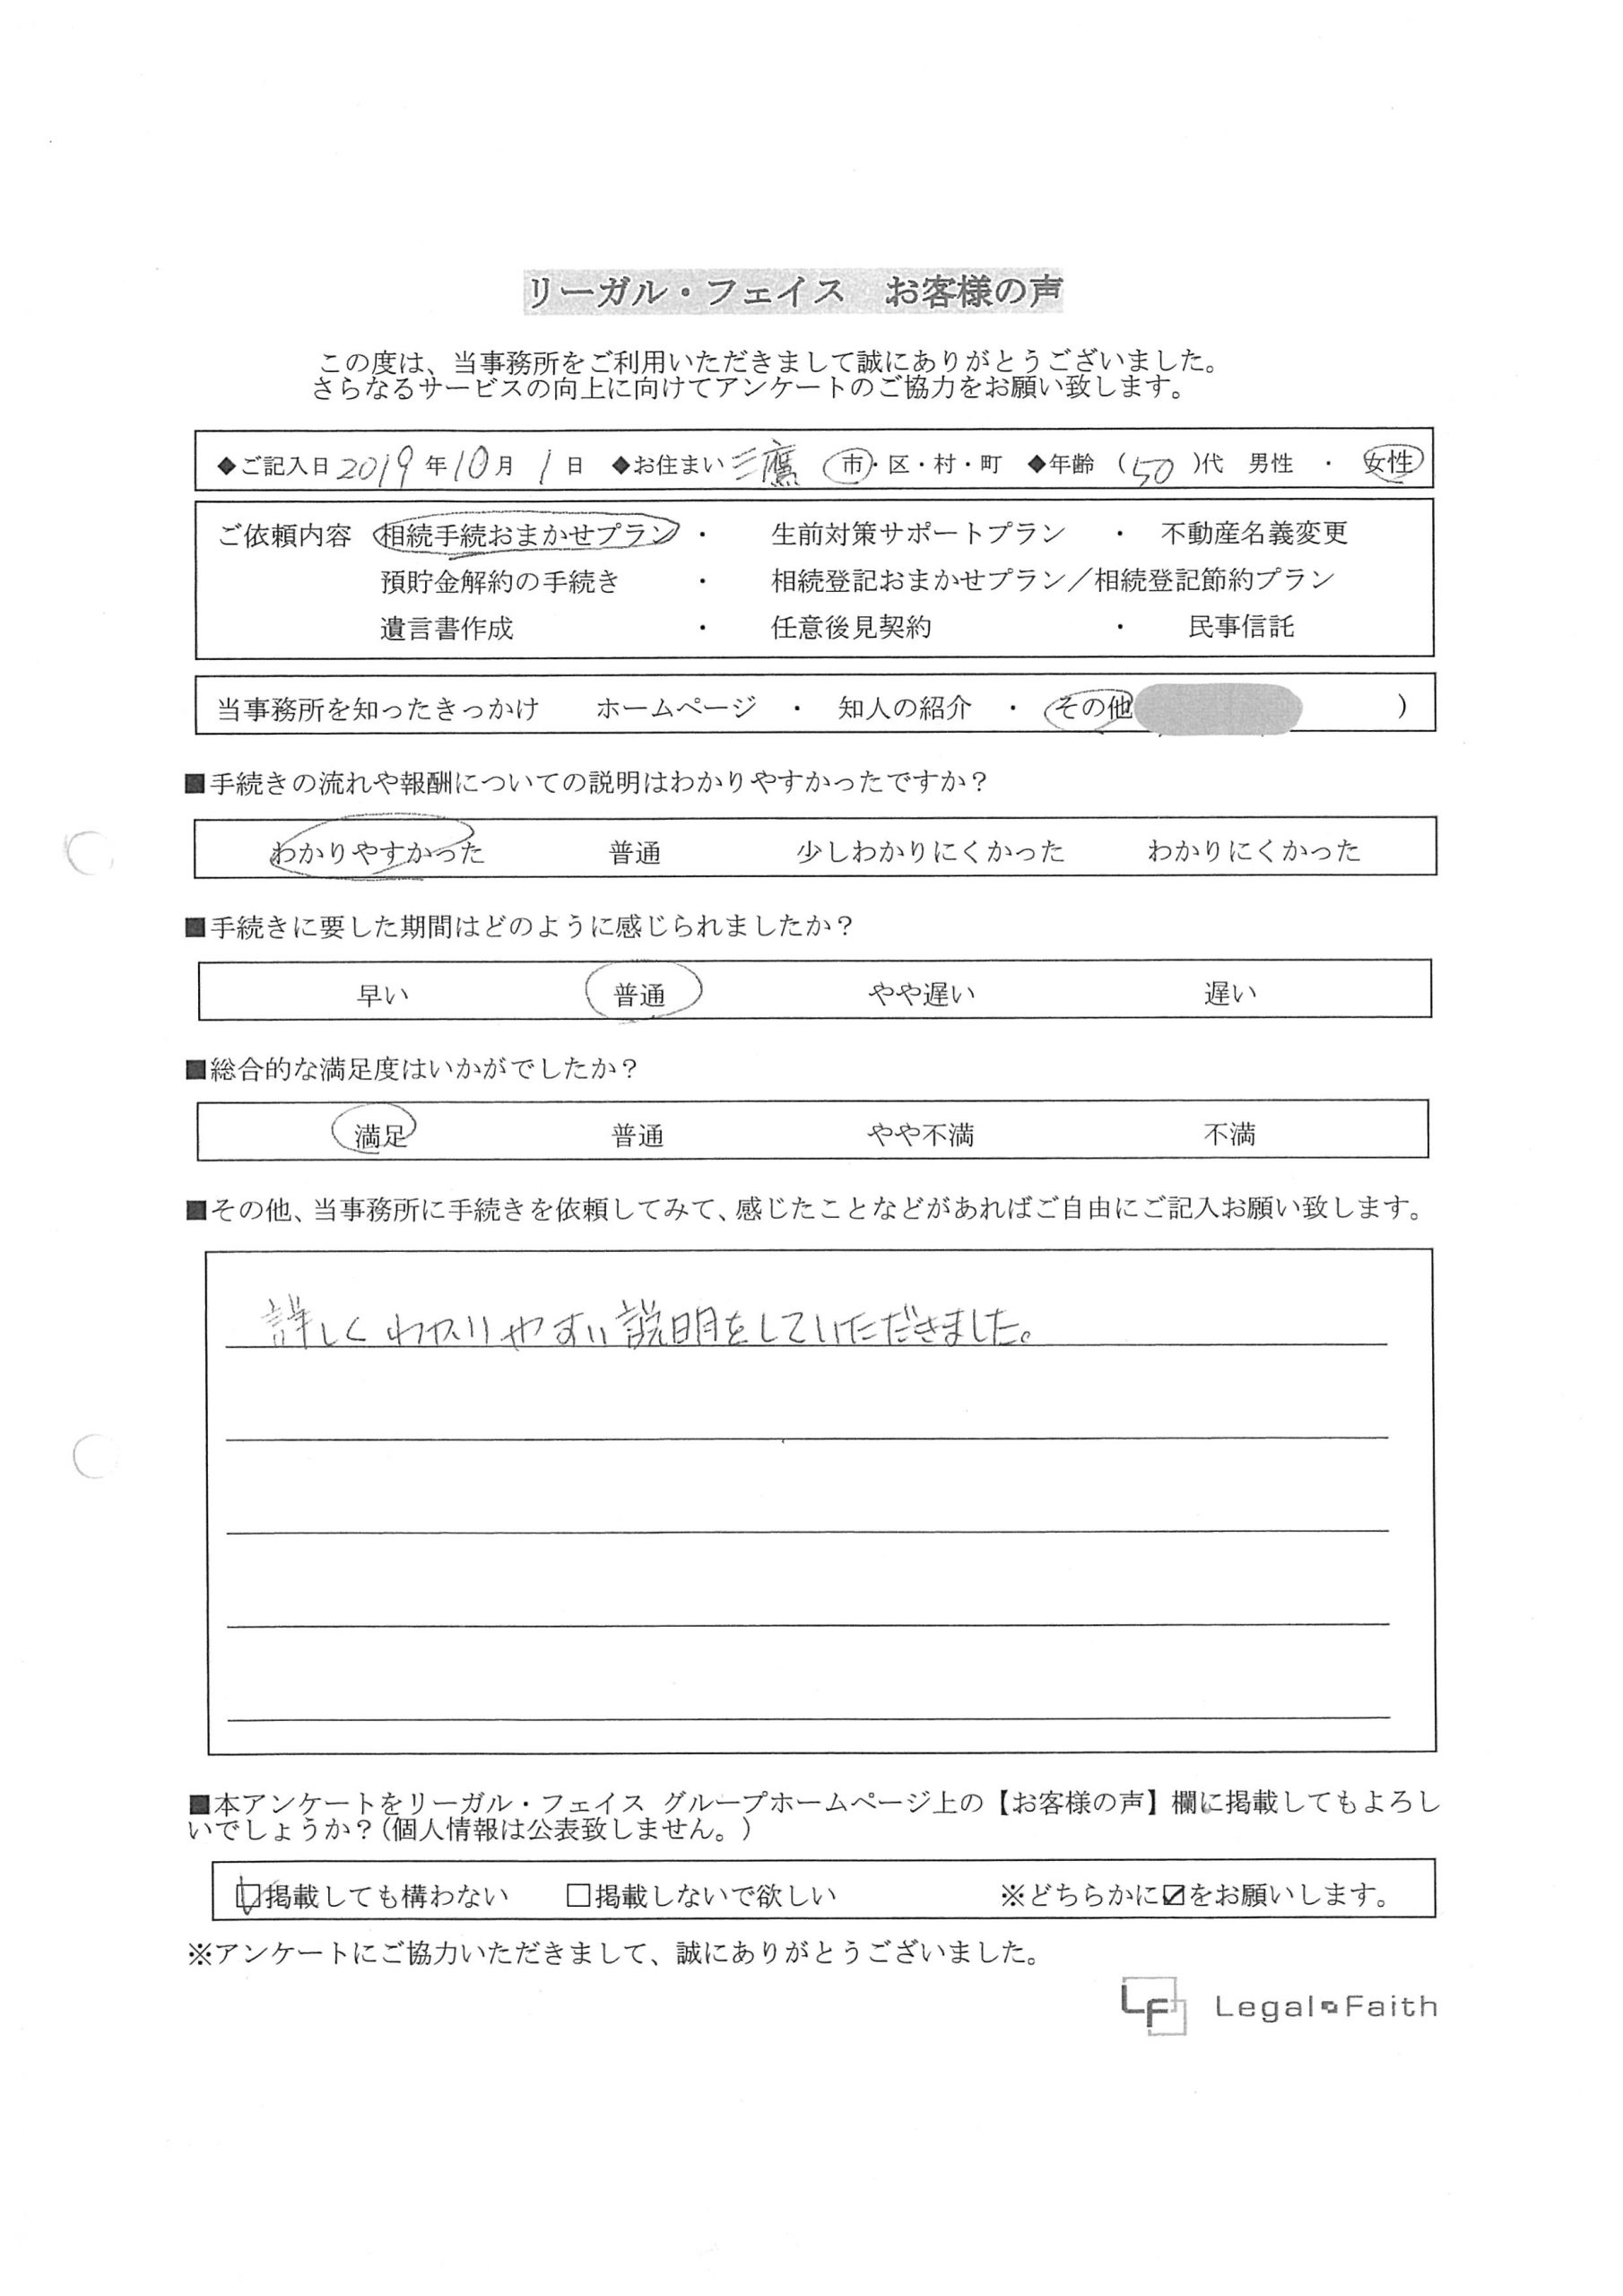 リーガル・フェイス　お客様の声
この度は、当事務所をご利用いただきまして誠にありがとうございました。
さらなるサービスの向上に向けてアンケートのご協力をお願い致します。
◆ご記入日 2019 年 10 月 1 日 ◆お住まい 三鷹 市・区・村・町 ◆年齢 (50)代 男性 ・ 女性
ご依頼内容 相続手続おまかせプラン ・ 生前対策サポートプラン ・ 不動産名義変更
預貯金解約の手続き ・ 相続登記おまかせプラン／相続登記節約プラン
遺言書作成 ・ 任意後見契約 ・ 民事信託
当事務所を知ったきっかけ ホームページ ・ 知人の紹介 ・ その他 )
■手続きの流れや報酬についての説明はわかりやすかったですか？
わかりやすかった 普通 少しわかりにくかった わかりにくかった
■手続きに要した期間はどのように感じられましたか？
早い 普通 やや遅い 遅い
■総合的な満足度はいかがでしたか？
満足 普通 やや不満 不満
■その他、当事務所に手続きを依頼してみて、感じたことなどがあればご自由にご記入お願い致します。
詳しくわかりやすい説明をしていただきました。
■本アンケートをリーガル・フェイス グループホームページ上の【お客様の声】欄に掲載してもよろし
いでしょうか？(個人情報は公表致しません。)
☑掲載しても構わない □掲載しないで欲しい ※どちらかに☑をお願いします。
※アンケートにご協力いただきまして、誠にありがとうございました。
LF Legal Faith